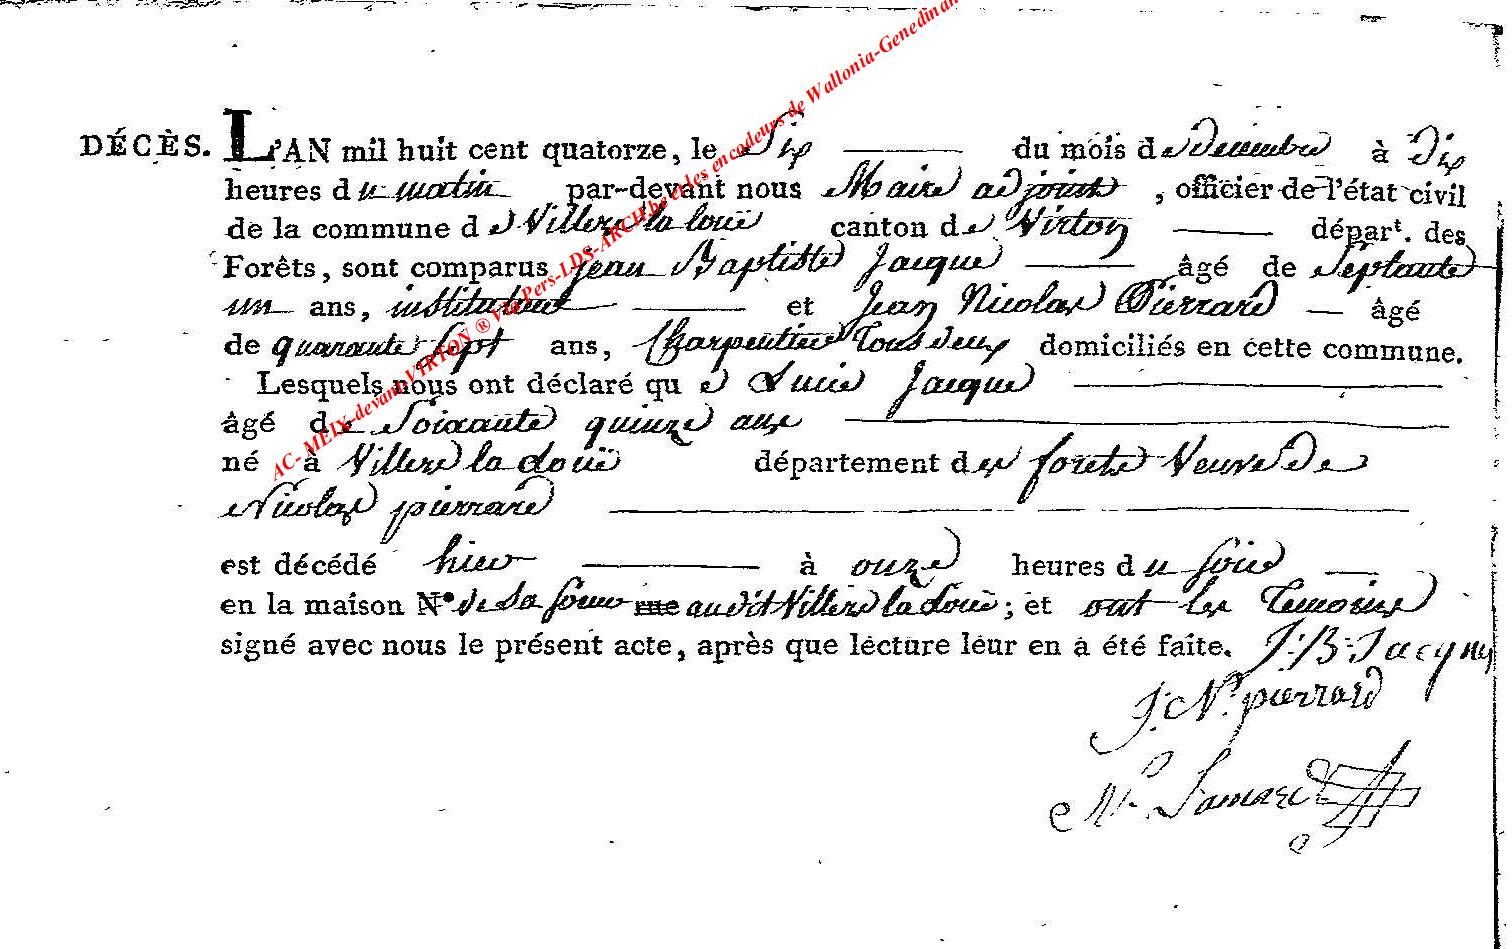 AC- MEIX-devant-VIRTON ® Via Pers-LDS-ARCH.be et les encodeurs de Wallonia-Genedinan
DÉCÈS. L'AN mil huit cent quatorze, le Six du mois de Decembre à Dix
heures du matin par-devant nous Maire adjoint, officier de l'état civil
de la commune de Villers la loüe canton de Virton dépar<sup>t</sup>. des
Forêts, sont comparus jean Baptiste Jacque âgé de Septante
un ans, instituteur et Jean Nicolas Pierrard âgé
de quarante Sept ans, Charpentier Tous deux domiciliés en cette commune.
Lesquels nous ont déclaré que Lucie Jacque
âgé de Soixante quinze ans
né à Villers la Loüe département des forets Veuve De
Nicolas pierrard
est décédé hier à onze heures du soir
en la maison N° de Sa rue audit Villers la Loüe; et ont les Temoins
signé avec nous le présent acte, après que lecture leur en a été faite. J: B: Jacque
J: N: pierrard